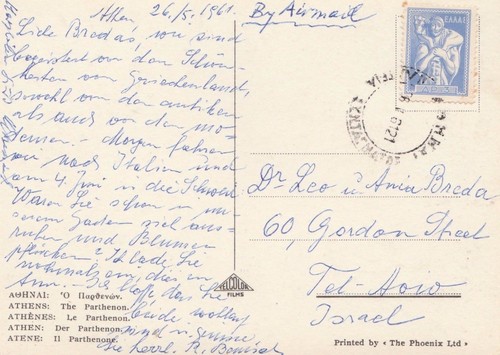 Athen 26./5. 1961.
By Airmail
Liebe Bredas, wir sind
begeistert von den Schön-
heiten von Griechenland,
sowohl von den antiken
als auch von den mo-
dernen. - Morgen fahren
wir nach Italien und
am 4. Juni in die Schweiz
Waren Sie schon in un-
serem Garten sich aus-
ruhen und Blumen
pflücken? Ich lade Sie
nochmals ein, dies zu
tun. - Ich hoffe, dass Sie
beide wohlauf
sind u. grüsse
Sie herzl. R.
ΕΛΛΑΣ
ΑΘΗΝΑΙ
Dr. Leo u. Ania Breda
60, Gordon Street
Tel-Aviv
Israel
ΑΘΗΝΑΙ: Ὁ Παρθενών.
ATHENS: The Parthenon.
ATHÈNES: Le Parthenon.
ATHEN: Der Parthenon.
ATENE: Il Parthenone.
DELCOLOR
FILMS
Printed by « The Phoenix Ltd »